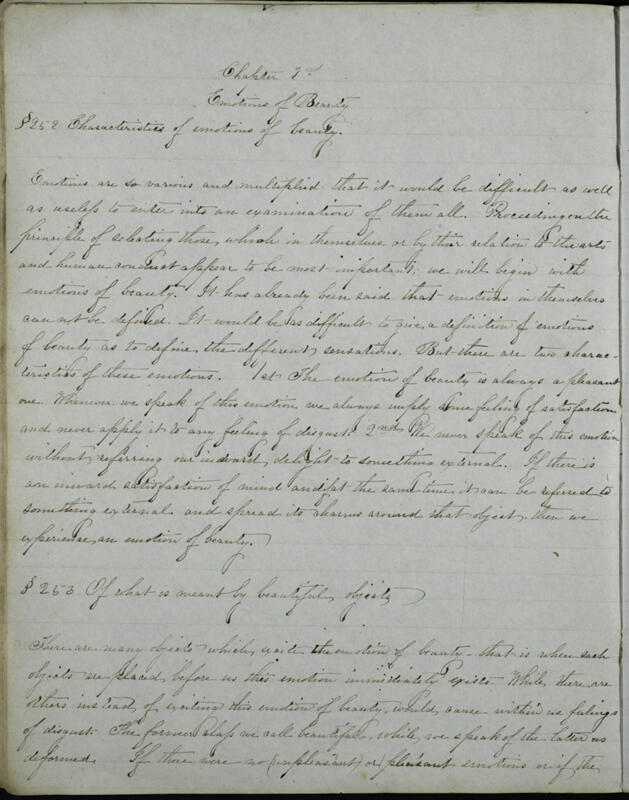 Chapter 2nd
Emotions of Beauty
§ 252 Characteristics of emotions of beauty.
Emotions are so various and multiplied that it would be difficult as well
as useless to enter into an examination of them all. Proceeding on the
principle of selecting those, which in themselves or by their relation to the arts
and human conduct appear to be most important, we will begin with
emotions of beauty. It has already been said that emotions in themselves
can not be defined. It would be as difficult to give a definition of emotions
of beauty as to define, the different sensations. But there are two charac-
teristics of these emotions. 1st The emotion of beauty is always a pleasant
one. Whenever we speak of this emotion we always imply some feeling of satisfaction
and never apply it to any feeling of disgust. 2nd We never speak of this emotion
without referring our inward delight to something external. If there is
an inward satisfaction of mind and at the same time it can be referred to
something external and spread its charms around that object, then we
experience an emotion of beauty.
§ 253 Of what is meant by beautiful objects
There are many objects which excite the emotion of beauty - that is when such
objects are placed before us this emotion immediately exists. While, there are
others instead of exciting this emotion of beauty, would cause within us feelings
of disgust. The former class we call beautiful, while, we speak of the latter as
deformed. If there were no (unpleasant) or pleasant emotions or if the